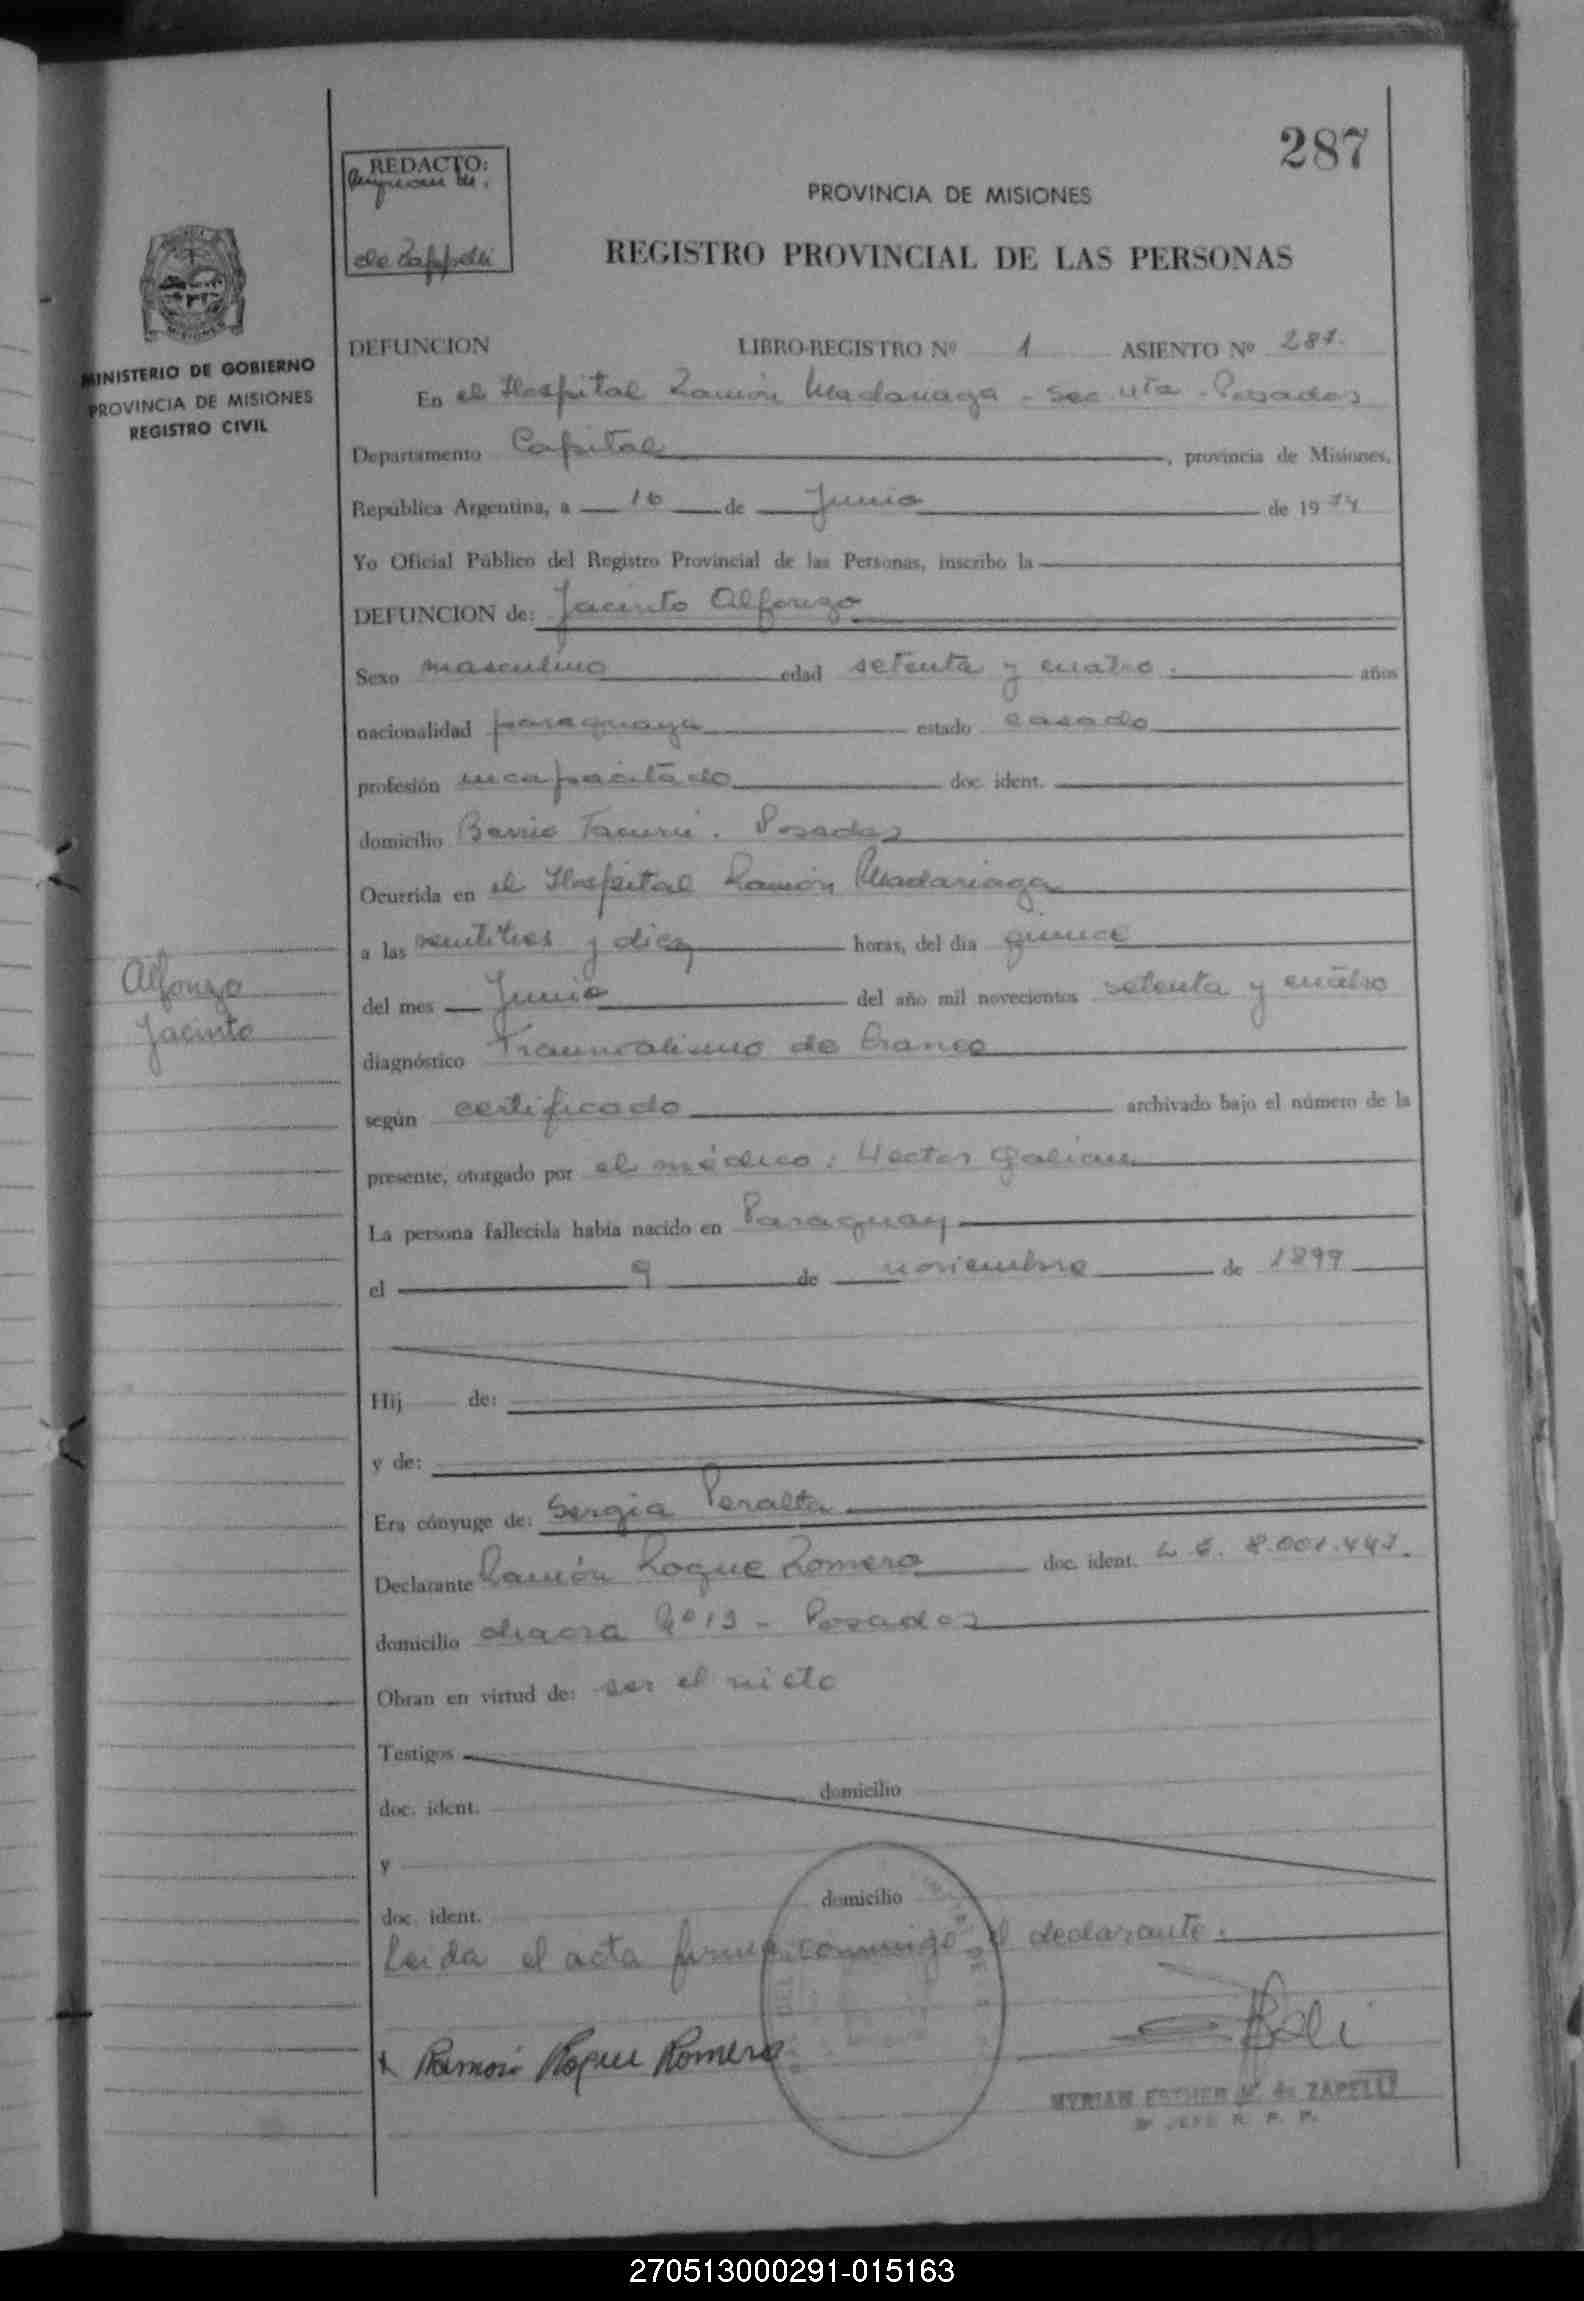 287
REDACTO:
de Zappelli
PROVINCIA DE MISIONES
REGISTRO PROVINCIAL DE LAS PERSONAS
MINISTERIO DE GOBIERNO
PROVINCIA DE MISIONES
REGISTRO CIVIL
DEFUNCION LIBRO-REGISTRO Nº 1 ASIENTO Nº 287.
En el Hospital Ramón Madariaga - Sec - Posadas
Departamento Capital, provincia de Misiones,
República Argentina, a 16 de Junio de 1974
Yo Oficial Público del Registro Provincial de las Personas, inscribo la
DEFUNCION de: Jacinto Alfonzo
Sexo masculino edad setenta y cuatro. años
nacionalidad paraguaya estado casado
profesión incapacitado doc. ident.
domicilio Barrio Tacurú. Posadas
Ocurrida en el Hospital Ramón Madariaga
a las veintitres y diez horas, del día quince
Alfonzo
Jacinto
del mes Junio del año mil novecientos setenta y cuatro
diagnóstico Traumatismo de Craneo
según certificado archivado bajo el número de la
presente, otorgado por el médico: Hector Galiano
La persona fallecida había nacido en Paraguay
el 9 de noviembre de 1899
Hij de:
y de:
Era cónyuge de: Sergia Peralta
Declarante Ramón Roque Romero doc. ident. L.E. 8.001.447.
domicilio chacra Nº 13 - Posadas
Obran en virtud de: ser el nieto
Testigos
doc. ident. domicilio
y
doc. ident. domicilio
Leida el acta firma conmigo el declarante.
Ramón Roque Romero
MYRIAM ESTHER M. de ZAPELLI
JEFE R. P. P.
270513000291-015163